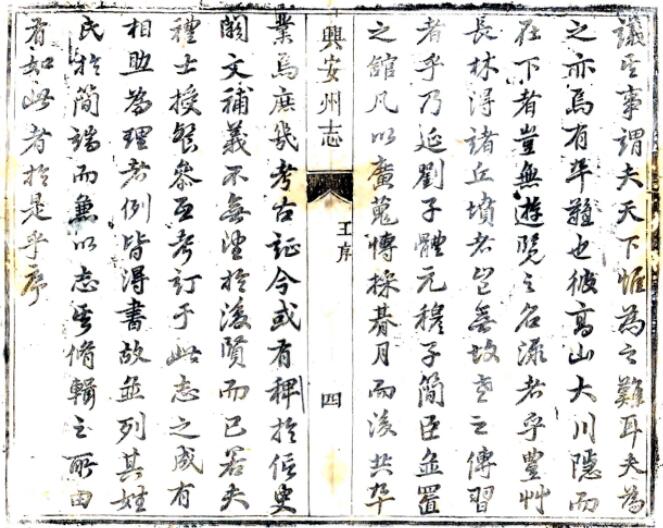 議其事謂夫天下惟為之難耳夫為
之亦烏有卒難也彼高山大川隱而
在下者豈無遊覽之名源者乎豐艸
長林得諸丘墳者豈無故老之傳習
者乎乃延劉子體元穆子簡臣並置
之館凡以廣蒐博採朞月而後共卒
興安州志
王序
四
業焉庶幾考古証今或有稗於信史
闕文補義不無望於後賢而已若夫
禮士授餐參互考訂于此志之成有
相助為理者例皆得書故並列其姓
氏於簡端而兼以志其脩輯之所由
有如此者於是乎序